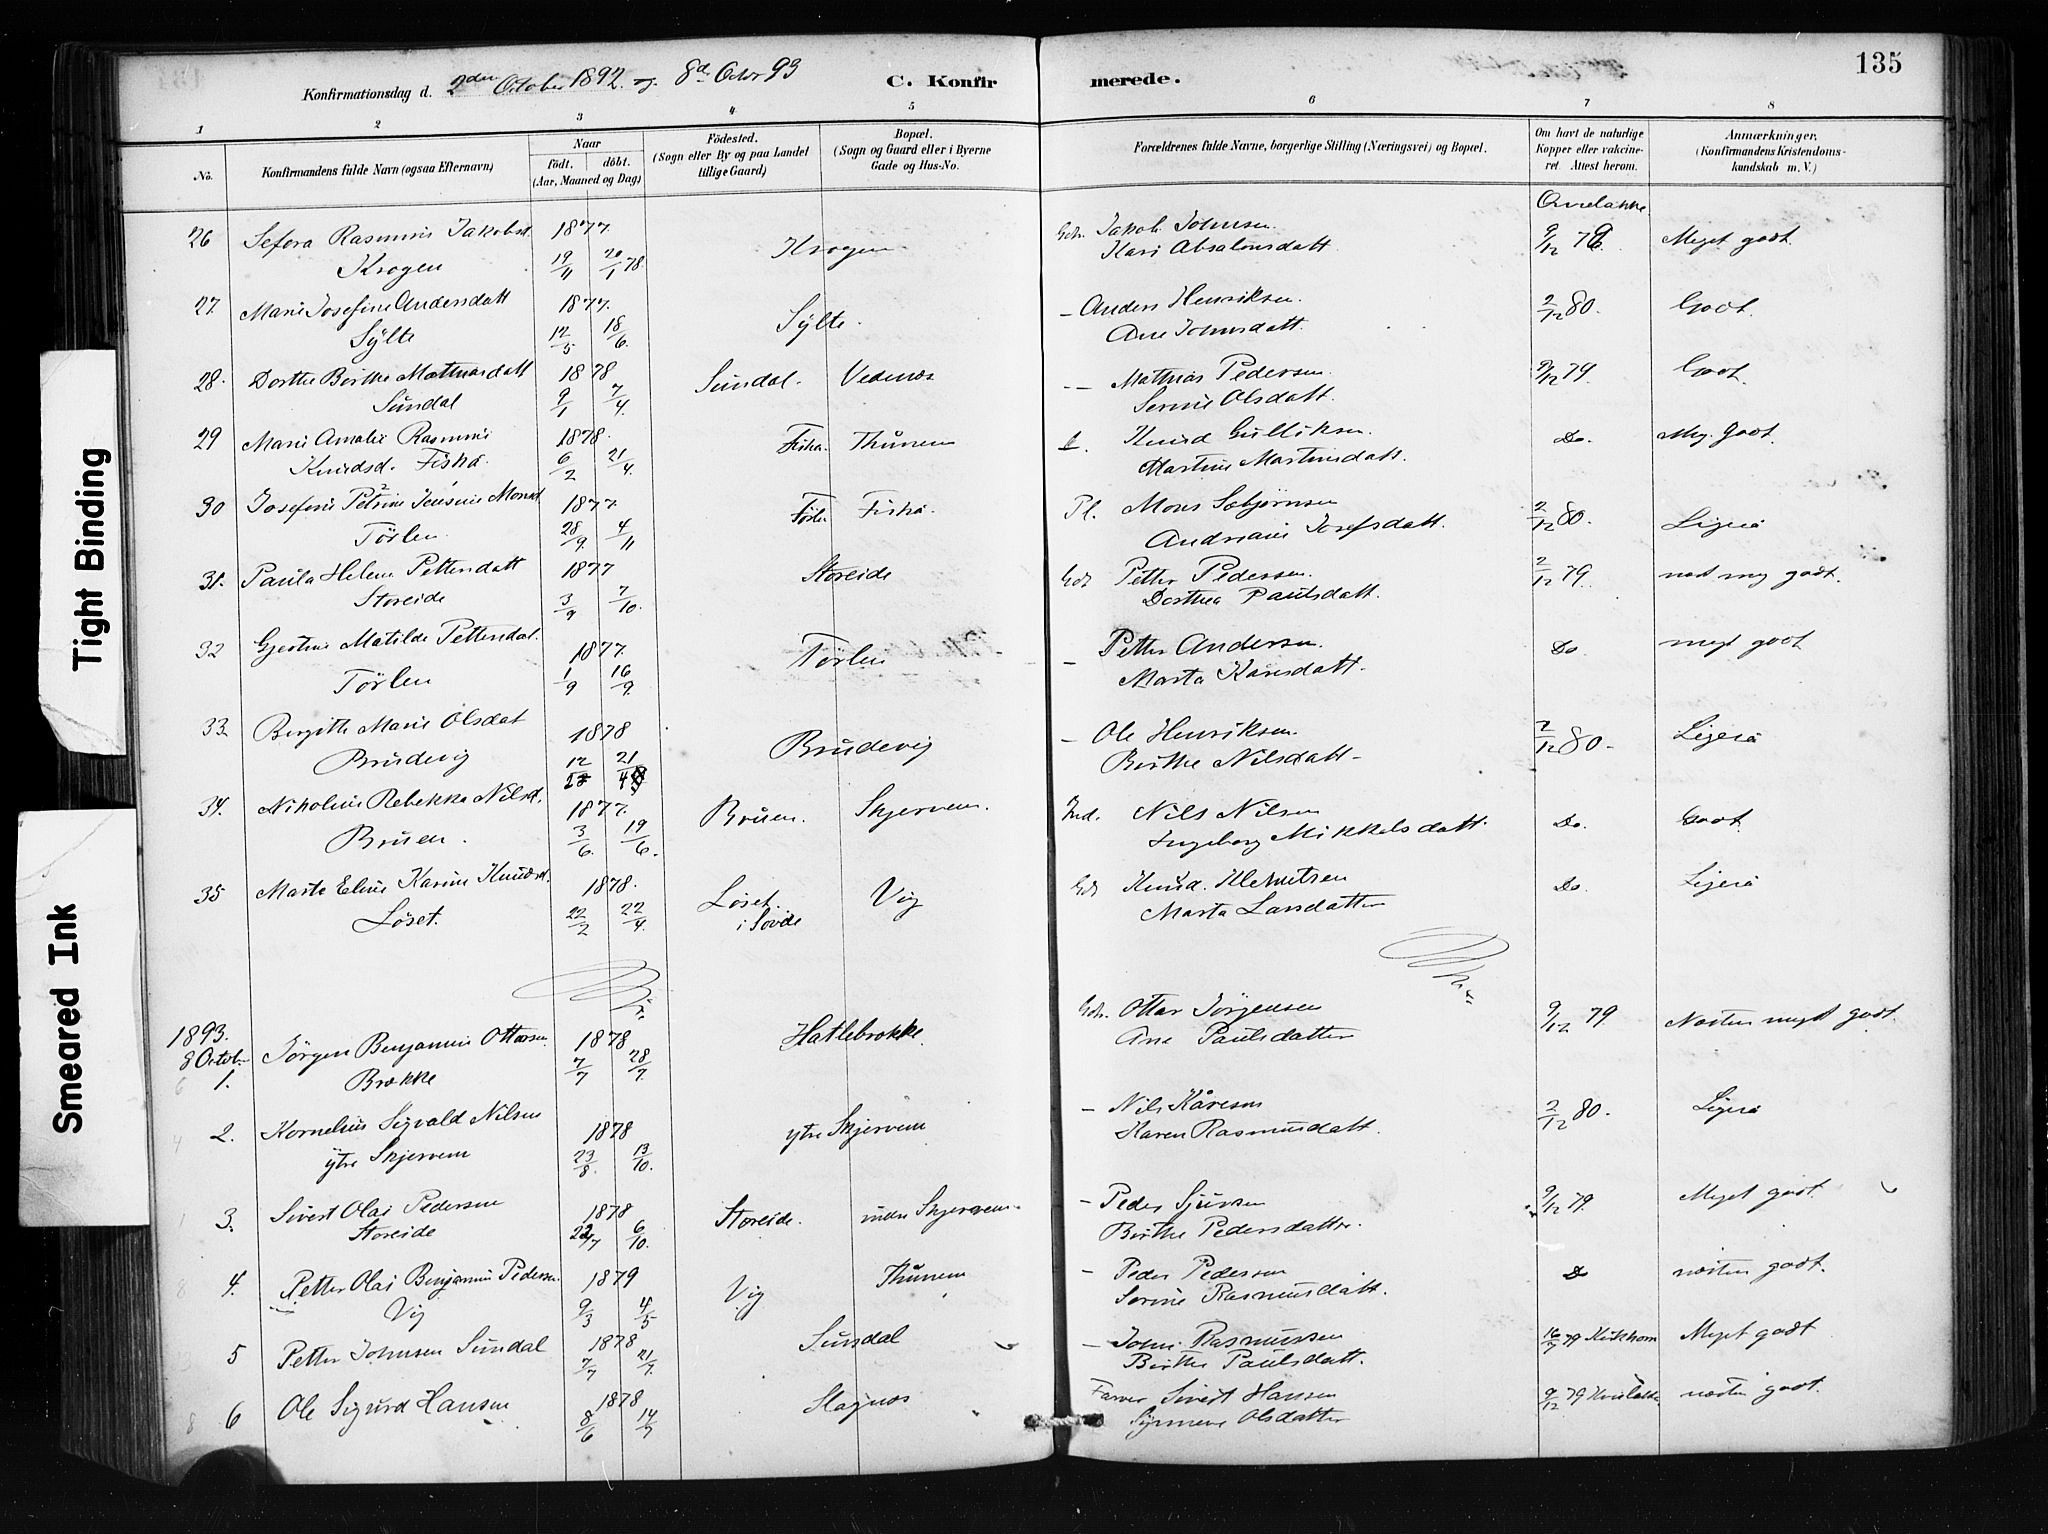 Tight Binding
Smeared Ink
135
Konfirmationsdag d. 2den October 1892 og 8d. Octbr 93
C. Konfirmerede.
1 2 3 4 5 6 7 8
No.
Konfirmandens fulde Navn (ogsaa Efternavn)
Naar
födt. döbt.
(Aar, Maaned og Dag)
Födested.
(Sogn eller By og paa Landet
tillige Gaard)
Bopæl.
(Sogn og Gaard eller i Byerne
Gade og Hus-No.
Forældrenes fulde Navne, borgerlige Stilling (Næringsvei) og Bopæl.
Om havt de naturlige
Kopper eller vakcine-
ret Attest herom.
Anmærkninger.
(Konfirmandens Kristendoms-
kundskab m. V.)
26 Sefora Rasmine Jakobsd. 1877. Krogen Jakob Johnsen 9/12 Meget godt.
Krogen 19/11 20/1 78 Kari Absalonsdatt
27. Marie Josefine Andersdatt 1877. Sylte. - Anders Henriksen. 2/12 80. Godt.
Sylte 12/5 18/6. Ane Johnsdatt.
28. Dorthe Birthe Mathiasdatt 1878 Sundal. Vedenæs - Mathias Pedersen. 9/12 79. Godt.
Sundal 9/1 7/4. Serine Olsdatt.
29 Marie Amalie Rasmine 1878. Fiskå. Thunem Knud Gulliksen. Do. Meg. Godt.
Knudsd. Fiskå. 6/2 21/4. Martine Martinsdatt.
30 Josefine Petrine Jensine Monsd. 1877. Törlen Fiskå. Pl. Mons Sebjørnsen 2/12 80. Ligeså
Törlen. 28/9. 4/11 Andriane Josefsdatt.
31. Paula Helene Pettersdatt 1877 Storeide Petter Pedersen. 2/12 79. næst meg godt.
Storeide 3/9 7/10. Dorthea Paulsdatt.
32 Gjertine Matilde Pettersdat. 1877. Törlen - Petter Andersen. Do meget godt
Törlen 1/9 16/9. Marta Kånsdatt.
33 Birgitte Marie Olsdat 1878 Brudevig - Ole Henriksen. 2/12 80. Ligeså
Brudevig 12/2 21/4 Birthe Nilsdatt.
34. Nikoline Rebekka Nilsd. 1877. Bruen. Skjervem. Ind. Nils Nilsen Do. Godt
Bruen. 3/6. 19/6. Ingeborg Mikkelsdatt.
35 Marte Eline Karine Knudsd. 1878. Löset. Vig Knud Klemetsen Do Ligeså
Löset. 22/2 22/4. i Søvde Marta Larsdatter
1893.
8 Octob.
1. Jörgen Benjamin Ottarsen. 1878 Hatlebrække. Ottar Jörgensen 9/12 79. Næsten meget godt.
Brække 7/7 28/7. Ane Paulsdatter
2. Kornelius Sigvald Nilsen 1878 ytre Skjervem - Nils Kåresen 2/12 80. Ligeså
ytre Skjervem 23/8. 13/10. Karen Rasmusdatt.
3. Sivert Olai Pedersen 1878 Storeide. indre Skjervem. - Peder Sjursen 9/12 79. Meget godt.
Storeide 22/7 6/10. Birthe Pedersdatter.
4. Petter Olai Benjamin Pedersen 1879 Vig Thunem - Peder Pedersen Do næsten godt.
Vig 9/3 4/5 Serine Rasmusdatt.
5 Petter Johnsen Sundal 1878 Sundal - John Rasmussen 16/9 79 Kirkhorn Meget godt
7/7 21/7. Birthe Paulsdatt.
6 Ole Sigurd Hansen 1878 Slagnæs Farver Sivert Hansen 9/12 79 næsten godt.
8/6 14/7 Synneve Olsdatter